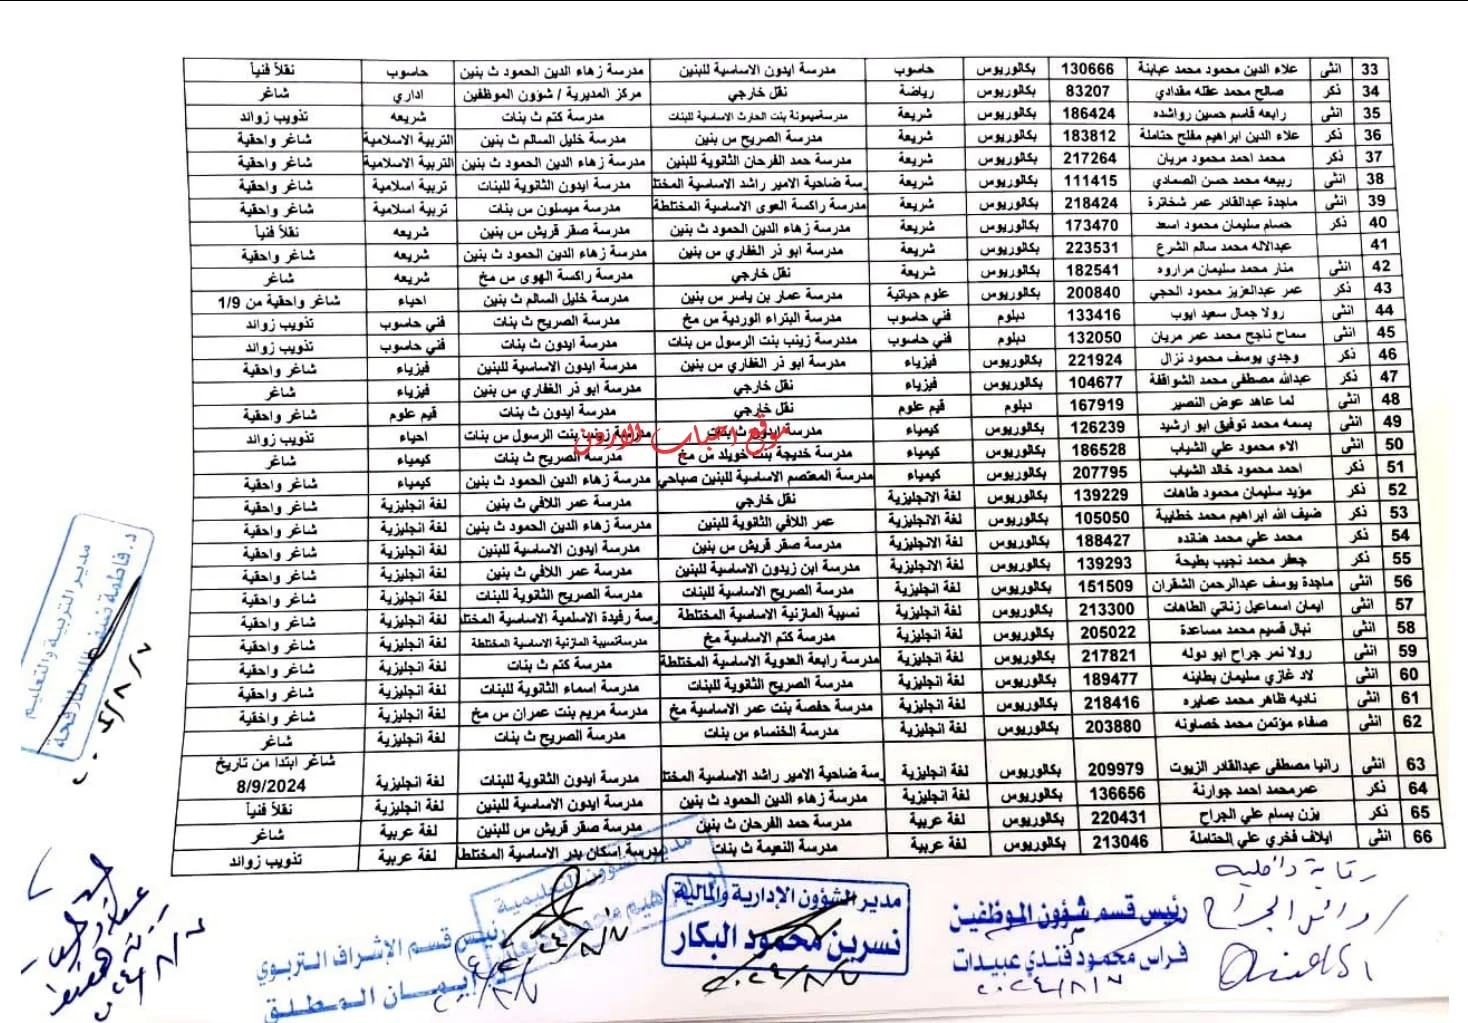 33 انثى علاء الدين محمود محمد عبابنة 130666 بكالوريوس حاسوب مدرسة ايدون الاساسية للبنين مدرسة زهاء الدين الحمود ث بنين حاسوب نقلاً فنياً
34 ذكر صالح محمد عقله مقدادي 83207 بكالوريوس رياضة نقل خارجي مركز المديرية / شؤون الموظفين اداري شاغر
35 انثى رابعه قاسم حسين رواشده 186424 بكالوريوس شريعة مدرسةميمونة بنت الحارث الاساسية للبنات مدرسة كتم ث بنات شريعه تذويب زوائد
36 ذكر علاء الدين ابراهيم مفلح حتاملة 183812 بكالوريوس شريعة مدرسة الصريح س بنين مدرسة خليل السالم ث بنين التربية الاسلامية شاغر واحقية
37 ذكر محمد احمد محمود مريان 217264 بكالوريوس شريعة مدرسة حمد الفرحان الثانوية للبنين مدرسة زهاء الدين الحمود ث بنين التربية الاسلامية شاغر واحقية
38 انثى ربيعه محمد حسن الصمادي 111415 بكالوريوس شريعة رسة ضاحية الامير راشد الاساسية المختل مدرسة ايدون الثانوية للبنات تربية اسلامية شاغر واحقية
39 انثى ماجدة عبدالقادر عمر شخاترة 218424 بكالوريوس شريعة مدرسة راكسة العوى الاساسية المختلطة مدرسة ميسلون س بنات تربية اسلامية شاغر واحقية
40 ذكر حسام سليمان محمود اسعد 173470 بكالوريوس شريعة مدرسة زهاء الدين الحمود ث بنين مدرسة صقر قريش س بنين شريعه نقلاً فنياً
41 عبدالاله محمد سالم الشرع 223531 بكالوريوس شريعة مدرسة ابو ذر الغفاري س بنين مدرسة زهاء الدين الحمود ث بنين شريعه شاغر واحقية
42 انثى منار محمد سليمان مراروه 182541 بكالوريوس شريعة نقل خارجي مدرسة راكسة الهوى س مخ شريعه شاغر
43 ذكر عمر عبدالعزيز محمود الحجي 200840 بكالوريوس علوم حياتية مدرسة عمار بن ياسر س بنين مدرسة خليل السالم ث بنين احياء شاغر واحقية من 1/9
44 انثى رولا جمال سعيد ايوب 133416 دبلوم فني حاسوب مدرسة البتراء الوردية س مخ مدرسة الصريح ث بنات فني حاسوب تذويب زوائد
45 انثى سماح ناجح محمد عمر مريان 132050 دبلوم فني حاسوب مددرسة زينب بنت الرسول س بنات مدرسة ايدون ث بنات فني حاسوب تذويب زوائد
46 ذكر وجدي يوسف محمود نزال 221924 بكالوريوس فيزياء مدرسة ابو ذر الغفاري س بنين مدرسة ايدون الاساسية للبنين فيزياء شاغر واحقية
47 ذكر عبدالله مصطفى محمد الشواقفة 104677 بكالوريوس فيزياء نقل خارجي مدرسة ابو ذر الغفاري س بنين فيزياء شاغر
48 انثى لما عاهد عوض النصير 167919 دبلوم قيم علوم نقل خارجي مدرسة ايدون ث بنات قيم علوم شاغر واحقية
49 انثى بسمه محمد توفيق ابو ارشيد 126239 بكالوريوس كيمياء مدرسة ايدون ث بنات مدرسة زينب بنت الرسول س بنات احياء تذويب زوائد
موقع اخبار الاردن
50 انثى الاء محمود علي الشياب 186528 بكالوريوس كيمياء مدرسة خديجة بنت خويلد س مخ مدرسة الصريح ث بنات كيمياء شاغر
51 ذكر احمد محمود خالد الشياب 207795 بكالوريوس كيمياء مدرسة المعتصم الاساسية للبنين صباحي مدرسة زهاء الدين الحمود ث بنين كيمياء شاغر واحقية
52 ذكر مؤيد سليمان محمود طاهات 139229 بكالوريوس لغة الانجليزية نقل خارجي مدرسة عمر اللافي ث بنين لغة انجليزية شاغر واحقية
53 ذكر ضيف الله ابراهيم محمد خطايبة 105050 بكالوريوس لغة الانجليزية عمر اللافي الثانوية للبنين مدرسة زهاء الدين الحمود ث بنين لغة انجليزية شاغر واحقية
54 ذكر محمد علي محمد هنانده 188427 بكالوريوس لغة الانجليزية مدرسة صقر قريش س بنين مدرسة ايدون الاساسية للبنين لغة انجليزية شاغر واحقية
55 ذكر جعفر محمد نجيب بطيحة 139293 بكالوريوس لغة الانجليزية مدرسة ابن زيدون الاساسية للبنين مدرسة عمر اللافي ث بنين لغة انجليزية شاغر واحقية
56 انثى ماجدة يوسف عبدالرحمن الشقران 151509 بكالوريوس لغة انجليزية مدرسة الصريح الاساسية للبنات مدرسة الصريح الثانوية للبنات لغة انجليزية شاغر واحقية
57 انثى ايمان اسماعيل زناتي الطاهات 213300 بكالوريوس لغة انجليزية نسيبة المازنية الاساسية المختلطة رسة رفيدة الاسلمية الاساسية المختل لغة انجليزية شاغر واحقية
58 انثى نبال قسيم محمد مساعدة 205022 بكالوريوس لغة انجليزية مدرسة كتم الاساسية مخ مدرسةنسيبة المازنية الاساسية المختلطة لغة انجليزية شاغر واحقية
59 انثى رولا نمر جراح ابو دوله 217821 بكالوريوس لغة انجليزية مدرسة رابعة العدوية الاساسية المختلطة مدرسة كتم ث بنات لغة انجليزية شاغر واحقية
60 انثى لاد غازي سليمان بطاينه 189477 بكالوريوس لغة انجليزية مدرسة الصريح الثانوية للبنات مدرسة اسماء الثانوية للبنات لغة انجليزية شاغر واحقية
61 انثى ناديه ظاهر محمد عمايره 218416 بكالوريوس لغة انجليزية مدرسة حفصة بنت عمر الاساسية مخ مدرسة مريم بنت عمران س مخ لغة انجليزية شاغر واحقية
62 انثى صفاء مؤتمن محمد خصاونه 203880 بكالوريوس لغة انجليزية مدرسة الخنساء س بنات مدرسة الصريح ث بنات لغة انجليزية شاغر
63 انثى رانيا مصطفى عبدالقادر الزيوت 209979 بكالوريوس لغة انجليزية رسة ضاحية الامير راشد الاساسية المختل مدرسة ايدون الثانوية للبنات لغة انجليزية شاغر ابتدا من تاريخ
8/9/2024
64 ذكر عمرمحمد احمد جوارنة 136656 بكالوريوس لغة انجليزية مدرسة زهاء الدين الحمود ث بنين مدرسة ايدون الاساسية للبنين لغة انجليزية نقلاً فنياً
65 ذكر يزن بسام علي الجراح 220431 بكالوريوس لغة عربية مدرسة حمد الفرحان ث بنين مدرسة صقر قريش س للبنين لغة عربية شاغر
66 انثى ايلاف فخري علي الحتاملة 213046 بكالوريوس لغة عربية مدرسة النعيمة ث بنات مدرسة إسكان بدر الاساسية المختلط لغة عربية تذويب زوائد
مدير التربية والتعليم
د. فاطمة
رقابة داخلية
وائل الجراح
رئيس قسم شؤون الموظفين
فراس محمود فندي عبيدات
٢٠٢٤/٨/٧
مدير الشؤون الإدارية والمالية
نسرين محمود البكار
٢٠٢٤/٨/٧
مدير الشؤون التعليمية
رئيس قسم الإشراف التربوي
إيمان المطلق